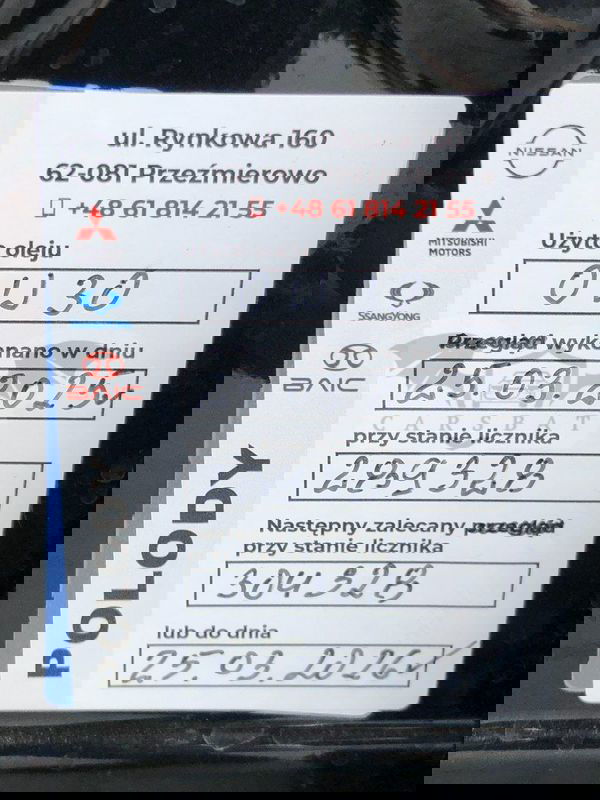 ul. Rynkowa 160
62-081 Przeźmierowo
+48 61 814 21 55 +48 61 814 21 55
NISSAN
MITSUBISHI
MOTORS
Użyto oleju
0W30
SSANGYONG
Przegląd wykonano w dniu
BAIC
25.03.2025
CARSBAT
przy stanie licznika
289328
Następny zalecany przegląd
przy stanie licznika
304328
lub do dnia
25.03.2026r
POLODY